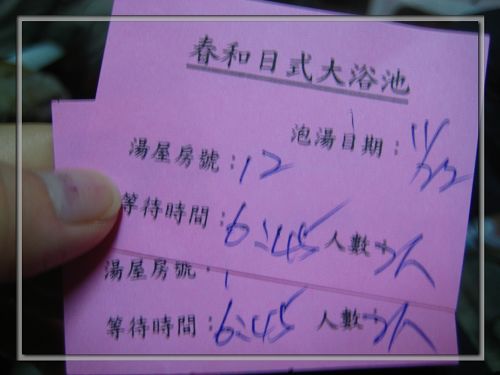 春和日式大浴池
泡湯日期：11/22
湯屋房號：12
等待時間：6:45 人數
湯屋房號：1
等待時間：6:45 人數